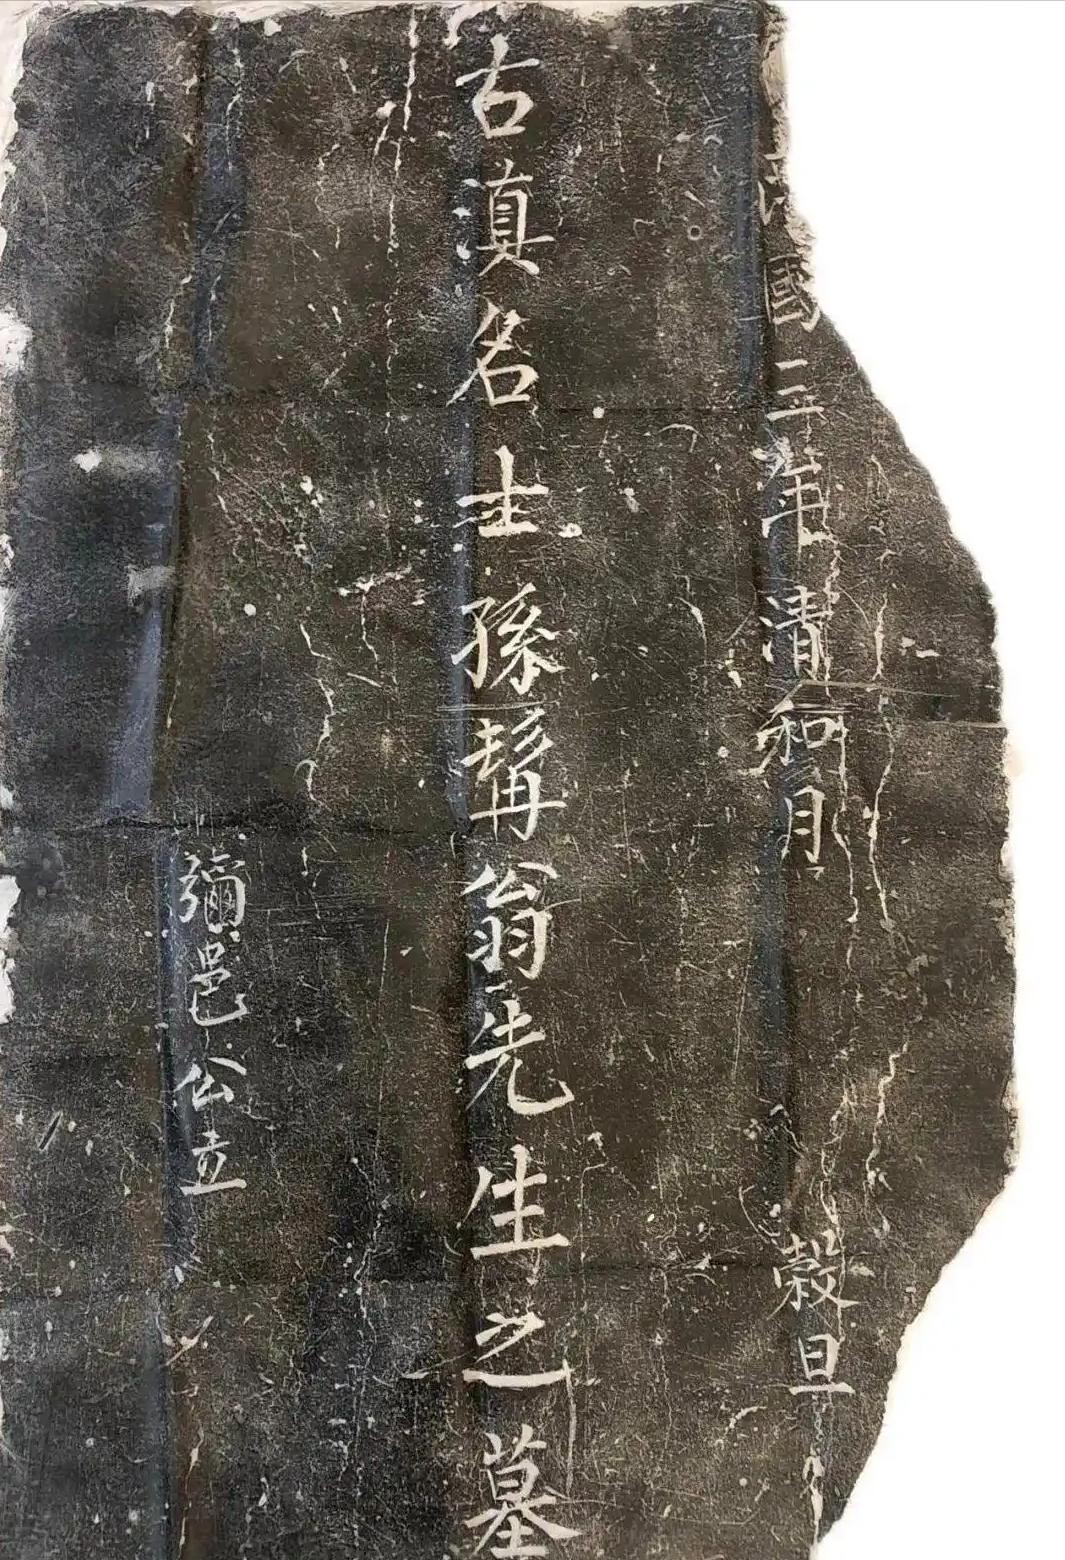 民國三年清和月 穀旦
古滇名士孫髯翁先生之墓
彌邑公立